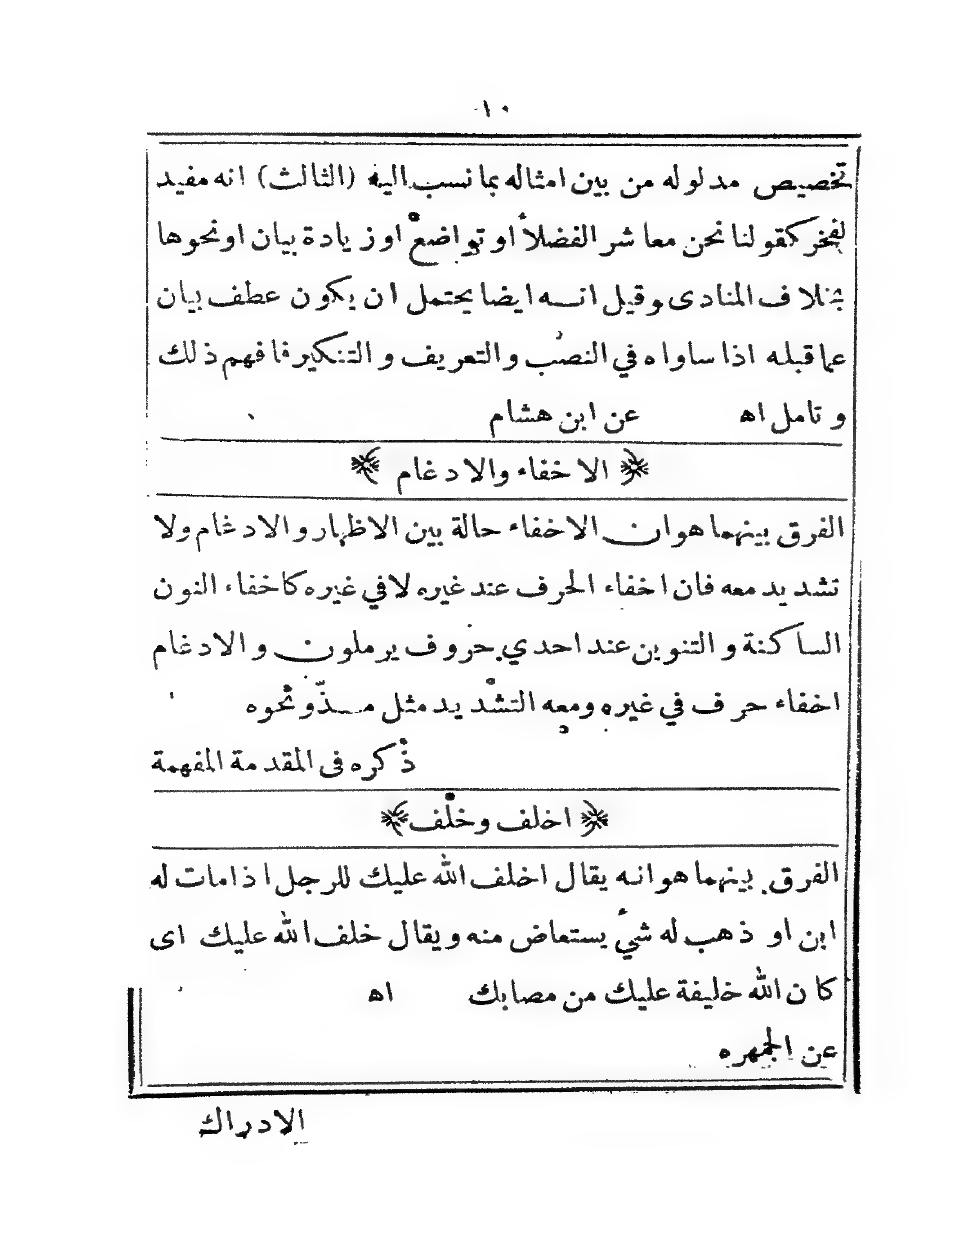 ١٠
تخصيص مدلوله من بين امثاله بما نسب اليه (الثالث) انه مفيد
لفخر كقولنا نحن معاشر الفضلاء او تواضع او زيادة بيان او نحوها
بخلاف المنادى وقيل انه ايضا يحتمل ان يكون عطف بيان
عما قبله اذا ساواه في النصب والتعريف والتنكير فافهم ذلك
وتامل اه عن ابن هشام
﴿ الاخفاء والادغام ﴾
الفرق بينهما هو ان الاخفاء حالة بين الاظهار والادغام ولا
تشديد معه فان اخفاء الحرف عند غيره لا في غيره كاخفاء النون
الساكنة والتنوين عند احدي حروف يرملون والادغام
اخفاء حرف في غيره ومعه التشديد مثل مدّ ونحوه
ذكره فى المقدمة المفهمة
﴿ اخلف وخلف ﴾
الفرق بينهما هو انه يقال اخلف الله عليك للرجل اذا مات له
ابن او ذهب له شيء يستعاض منه ويقال خلف الله عليك اى
كان الله خليفة عليك من مصابك اه
عن الجمهره
الادراك